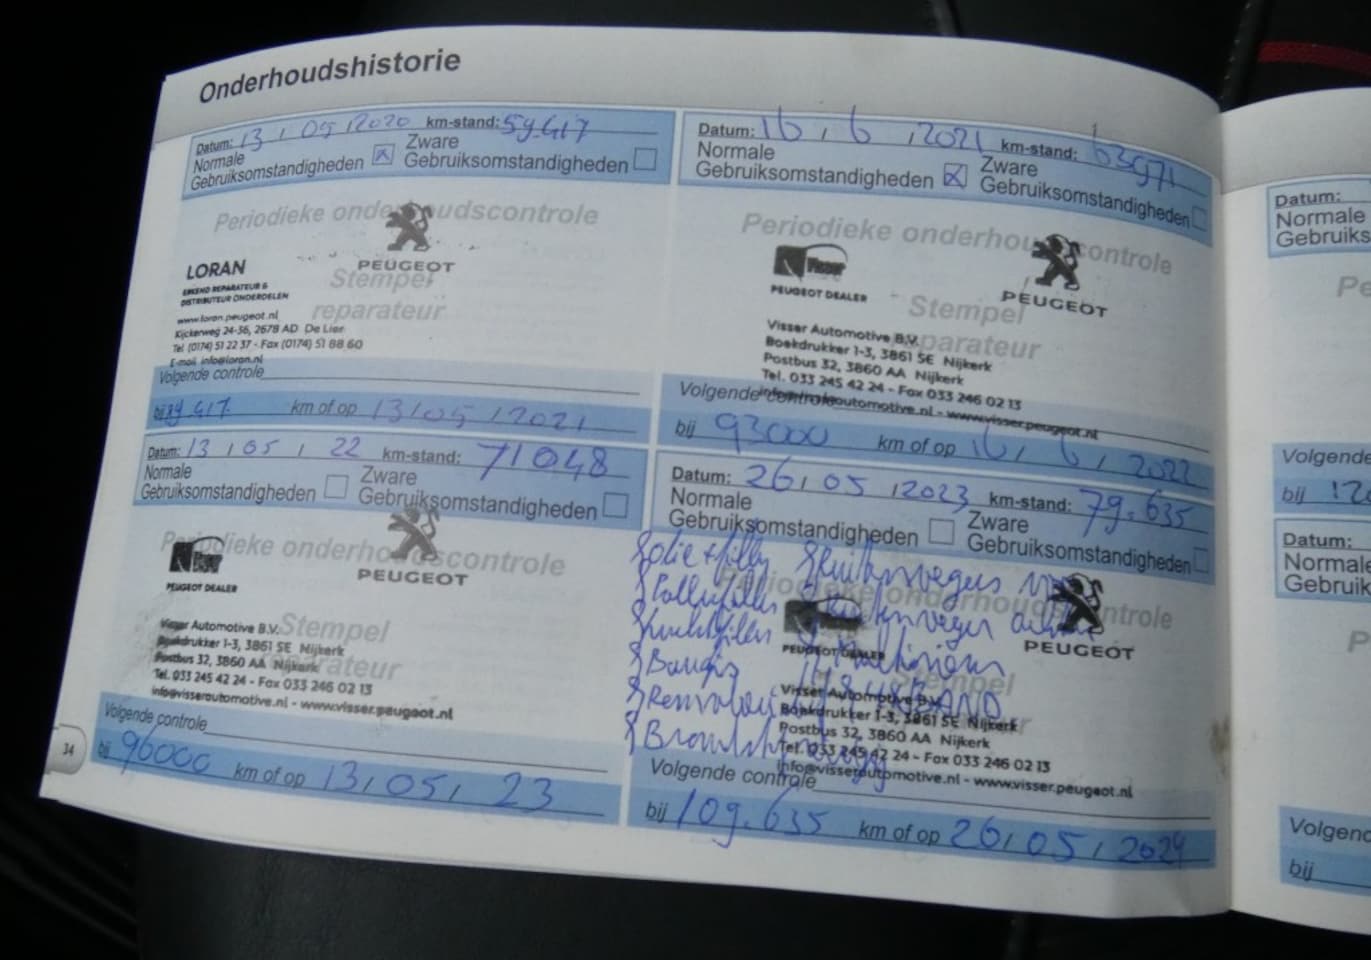 Onderhoudshistorie
Datum: 13 / 05 / 2020 km-stand: 59.417
Normale Gebruiksomstandigheden x Zware Gebruiksomstandigheden
Periodieke onderhoudscontrole
PEUGEOT
LORAN
ERKEND REPARATEUR &
DISTRIBUTEUR ONDERDELEN
Stempel
reparateur
www.loran.peugeot.nl
Kijckerweg 24-36, 2678 AD De Lier
Tel. (0174) 51 22 37 - Fax (0174) 51 88 60
E-mail info@loran.nl
Volgende controle
bij 89417 km of op 13/05/2021
Datum: 16 / 6 / 2021 km-stand: 63971
Normale Gebruiksomstandigheden x Zware Gebruiksomstandigheden
Periodieke onderhoudscontrole
Visser
PEUGEOT DEALER
PEUGEOT
Stempel
reparateur
Visser Automotive B.V.
Boekdrukker 1-3, 3861 SE Nijkerk
Postbus 32, 3860 AA Nijkerk
Tel. 033 245 42 24 - Fax 033 246 02 13
info@visserautomotive.nl - www.visser.peugeot.nl
Volgende controle
bij 93000 km of op 16 / 6 / 2022
Datum: 13 / 05 / 22 km-stand: 71048
Normale Gebruiksomstandigheden Zware Gebruiksomstandigheden
Periodieke onderhoudscontrole
PEUGEOT DEALER
PEUGEOT
Stempel
reparateur
Visser Automotive B.V.
Boekdrukker 1-3, 3861 SE Nijkerk
Postbus 32, 3860 AA Nijkerk
Tel. 033 245 42 24 - Fax 033 246 02 13
info@visserautomotive.nl - www.visser.peugeot.nl
Volgende controle
bij 96000 km of op 13 / 05 / 23
34
Datum: 26 / 05 / 2023 km-stand: 79.635
Normale Gebruiksomstandigheden Zware Gebruiksomstandigheden
Periodieke onderhoudscontrole
Olie + filter Ruitenwissers
Pollenfilter
Luchtfilter
PEUGEOT DEALER
PEUGEOT
Stempel
Visser Automotive B.V.
Boekdrukker 1-3, 3861 SE Nijkerk
Postbus 32, 3860 AA Nijkerk
Tel. 033 245 42 24 - Fax 033 246 02 13
info@visserautomotive.nl - www.visser.peugeot.nl
Volgende controle
bij 109.635 km of op 26 / 05 / 2024
Datum:
Normale
Gebruiks
Pe
Volgende
bij
Datum:
Normale
Gebruiks
P
Volgend
bij